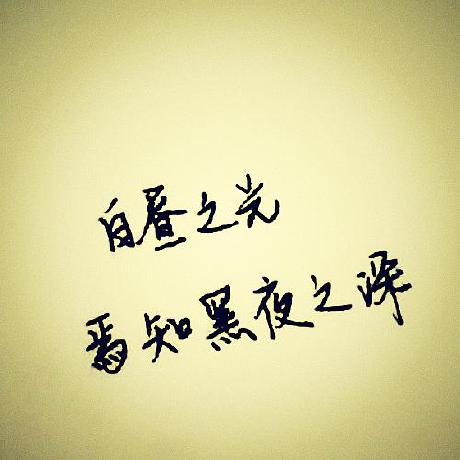 白昼之光
焉知黑夜之深